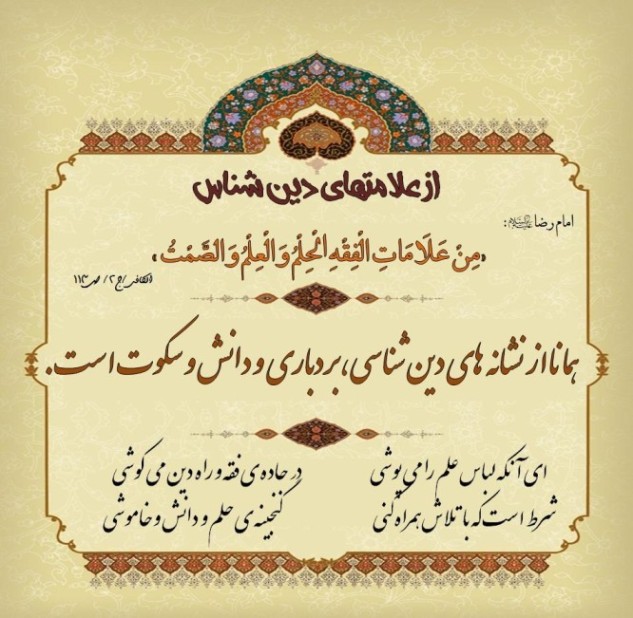 از علامتهای دین شناس
امام رضا علیه‌السلام:
«مِنْ عَلَامَاتِ الْفِقْهِ الْحِلْمُ وَ الْعِلْمُ وَ الصَّمْتُ»
الکافی/ج۲/ص۱۱۳
همانا از نشانه های دین شناسی، بردباری و دانش و سکوت است.
ای آنکه لباس علم را می پوشی در جاده ی فقه و راه دین می کوشی
شرط است که با تلاش همراه کنی گنجینه ی حلم و دانش و خاموشی